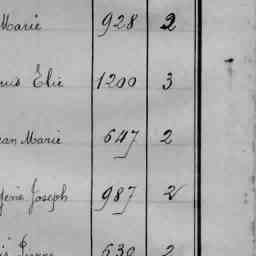 Marie 928 2
Elie 1200 3
Marie 647 2
Joseph 987 2
Pierre 630 2